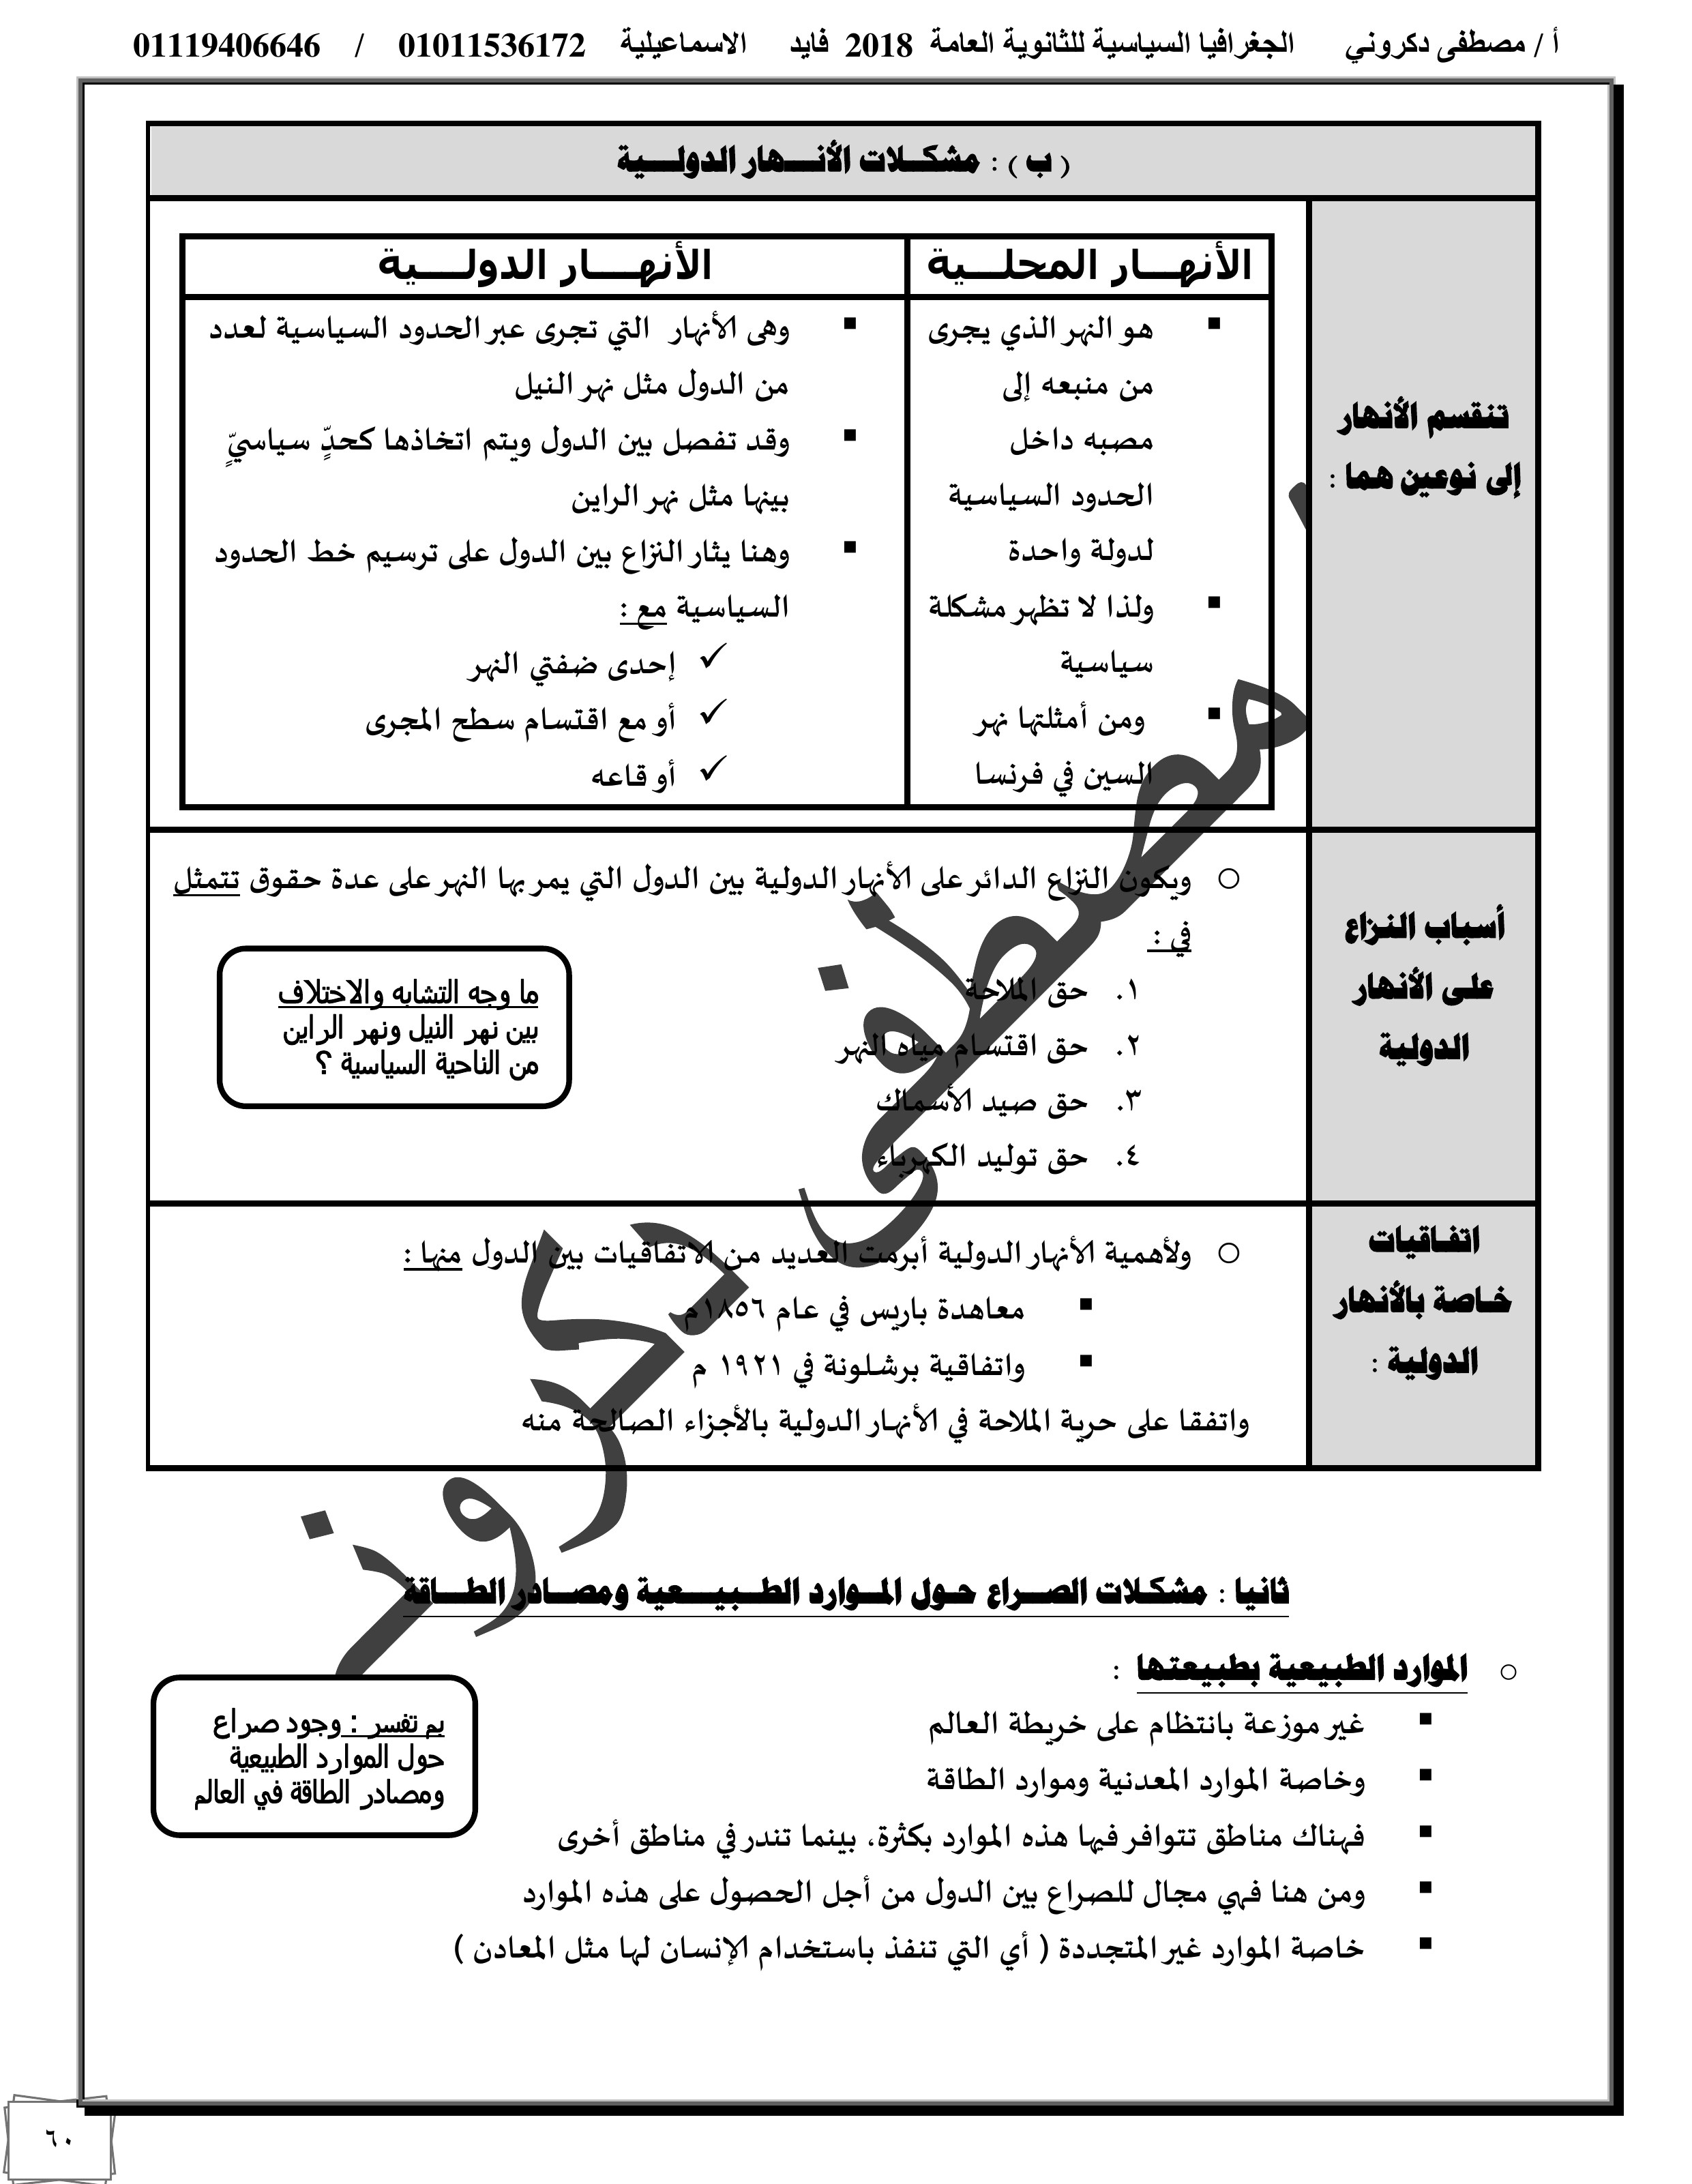 أ / مصطفى دكروني الجغرافيا السياسية للثانوية العامة 2018 فايد الاسماعيلية 01011536172 / 01119406646
( ب ) : مشكلات الأنهار الدولية
تنقسم الأنهار
إلى نوعين هما :
الأنهار المحلية
هو النهر الذي يجرى
من منبعه إلى
مصبه داخل
الحدود السياسية
لدولة واحدة
ولذا لا تظهر مشكلة
سياسية
ومن أمثلتها نهر
السين في فرنسا
الأنهار الدولية
وهى الأنهار التي تجرى عبر الحدود السياسية لعدد
من الدول مثل نهر النيل
وقد تفصل بين الدول ويتم اتخاذها كحدٍّ سياسيٍّ
بينها مثل نهر الراين
وهنا يثار النزاع بين الدول على ترسيم خط الحدود
السياسية مع :
✓ إحدى ضفتي النهر
✓ أو مع اقتسام سطح المجرى
✓ أو قاعه
أسباب النزاع
على الأنهار
الدولية
ويكون النزاع الدائر على الأنهار الدولية بين الدول التي يمر بها النهر على عدة حقوق تتمثل
في :
١. حق الملاحة
٢. حق اقتسام مياه النهر
٣. حق صيد الأسماك
٤. حق توليد الكهرباء
ما وجه التشابه والاختلاف
بين نهر النيل ونهر الراين
من الناحية السياسية ؟
اتفاقيات
خاصة بالأنهار
الدولية :
ولأهمية الأنهار الدولية أبرمت العديد من الاتفاقيات بين الدول منها :
معاهدة باريس في عام ١٨٥٦م
واتفاقية برشلونة في ١٩٢١ م
واتفقا على حرية الملاحة في الأنهار الدولية بالأجزاء الصالحة منه
مصطفى دكروني
ثانيا : مشكلات الصراع حول الموارد الطبيعية ومصادر الطاقة
الموارد الطبيعية بطبيعتها :
غير موزعة بانتظام على خريطة العالم
وخاصة الموارد المعدنية وموارد الطاقة
فهناك مناطق تتوافر فيها هذه الموارد بكثرة، بينما تندر في مناطق أخرى
ومن هنا فهي مجال للصراع بين الدول من أجل الحصول على هذه الموارد
خاصة الموارد غير المتجددة ( أي التي تنفذ باستخدام الإنسان لها مثل المعادن )
بم تفسر : وجود صراع
حول الموارد الطبيعية
ومصادر الطاقة في العالم
٦٠